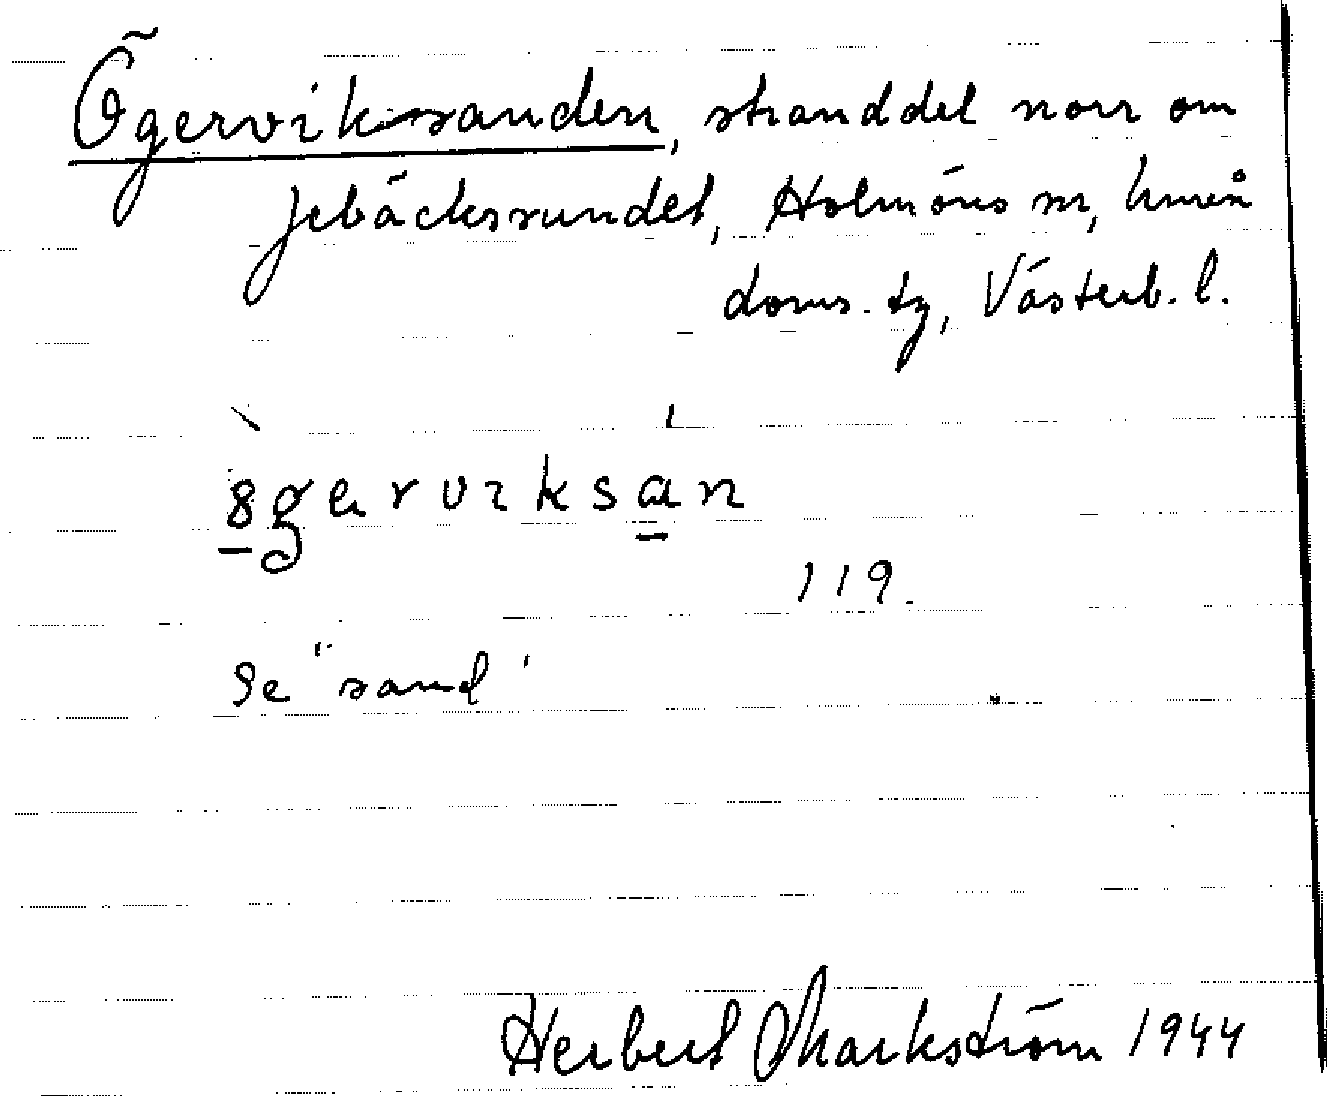 Ögerviksanden, stranddel norr om
Jebäcksundet, Holmöns sn, Umeå
doms. tg, Västerb. l.
8gervıksan
119.
Se "sand"
Herbert Markström 1944